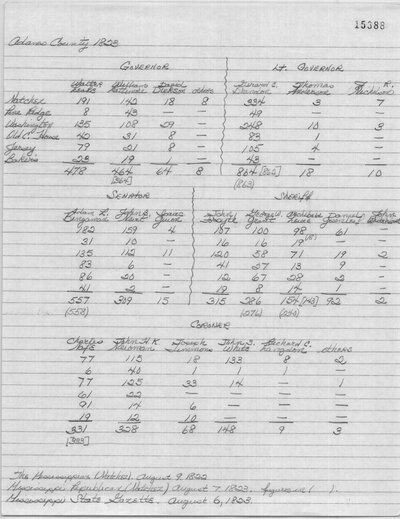 15388
Adams County 1823
GOVERNOR LT. GOVERNOR
Walter William David Gerard C. Thomas J. R.
Leake Dickson others Brandon Nicholson
Natchez 191 142 18 8 334 3 7
Pine Ridge 8 43 — 49 — —
Washington 135 108 29 — 248 10 3
Old C. House 42 31 8 — 83 1 —
Jersey 79 21 8 — 105 4 —
23 19 1 — 43 — —
478 464 64 8 804 18 10
[364] (863)
SENATOR SHERIFF
John Joseph Daniel John
182 159 4 187 100 98 61 —
31 10 — 16 16 19 —
135 112 11 120 58 71 19 2
83 6 — 41 27 13 9 —
86 20 — 12 67 28 2 —
41 2 — 19 8 14 1 —
557 309 15 315 286 154 [143] 92 2
(558) (276) (243)
CORONER
Charles John H. K. Joseph John S. Richard C.
Simmons White others
77 115 18 133 8 2
6 40 1 1 1 —
77 125 33 14 — 1
61 22 — — — —
91 14 6 — — —
19 12 10 — — —
331 328 68 148 9 3
The Mississippian (Natchez) August 9, 1823
Mississippi Republican (Natchez) August 7, 1823. figures in ( ).
Mississippi State Gazette. August 6, 1823.